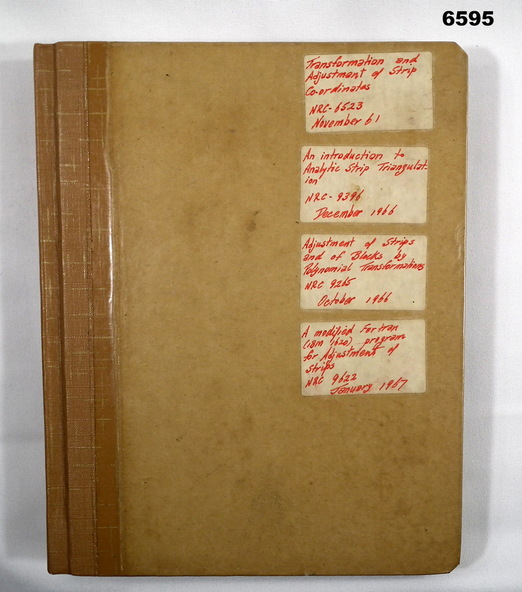 6595
Transformation and
Adjustment of Strip
Co-ordinates
NRC-6523
November 61
An introduction to
Analytic Strip Triangulat-
ion
NRC-9396
December 1966
Adjustment of Strips
and of Blocks by
Polynomial Transformations
NRC 9265
October 1966
A modified Fortran
(IBM 1620) program
for Adjustment of
Strips
NRC 9622
January 1967